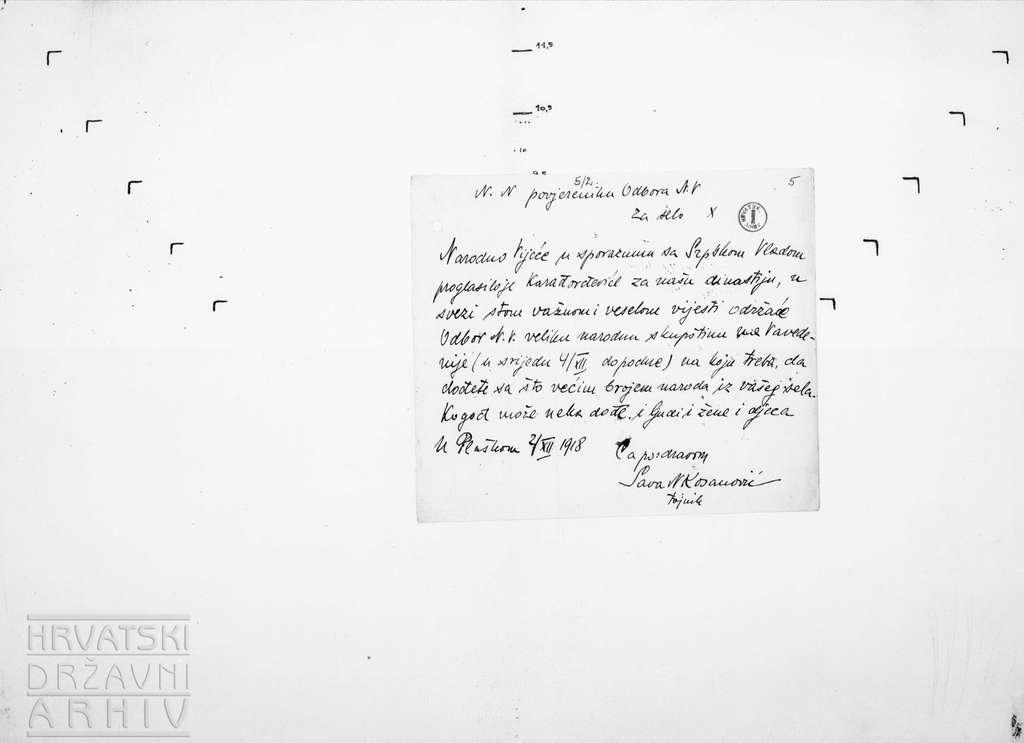 11,5
10,5
5/2.
5
N. N povjereniku Odbora N.V
za selo X
Narodno Vijeće u sporazumu sa Srpskom Vladom
proglasilo je Karađorđeviće za našu dinastiju, u
svezi stom važnom i veselom vijesti održaće
Odbor N.V. veliku narodnu skupštinu na Vavede-
nije (u srijedu 4/XII dopodne) na koju treba, da
dođete sa što većim brojem naroda iz vašeg sela.
Kogod može neka dođe, i ljudi i žene i djeca
U Plaškom 2/XII 1918
Sa pozdravom
Sava N Kosanović
tajnik
HRVATSKI
DRŽAVNI
ARHIV